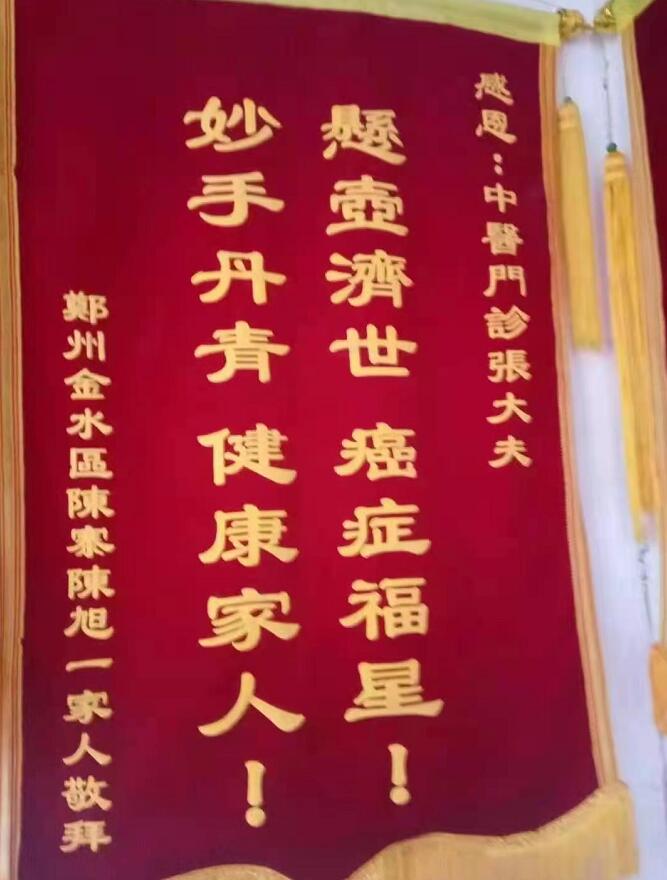 感恩：中醫門診張大夫
懸壺濟世 癌症福星！
妙手丹青 健康家人！
鄭州金水區陳寨陳旭一家人敬拜